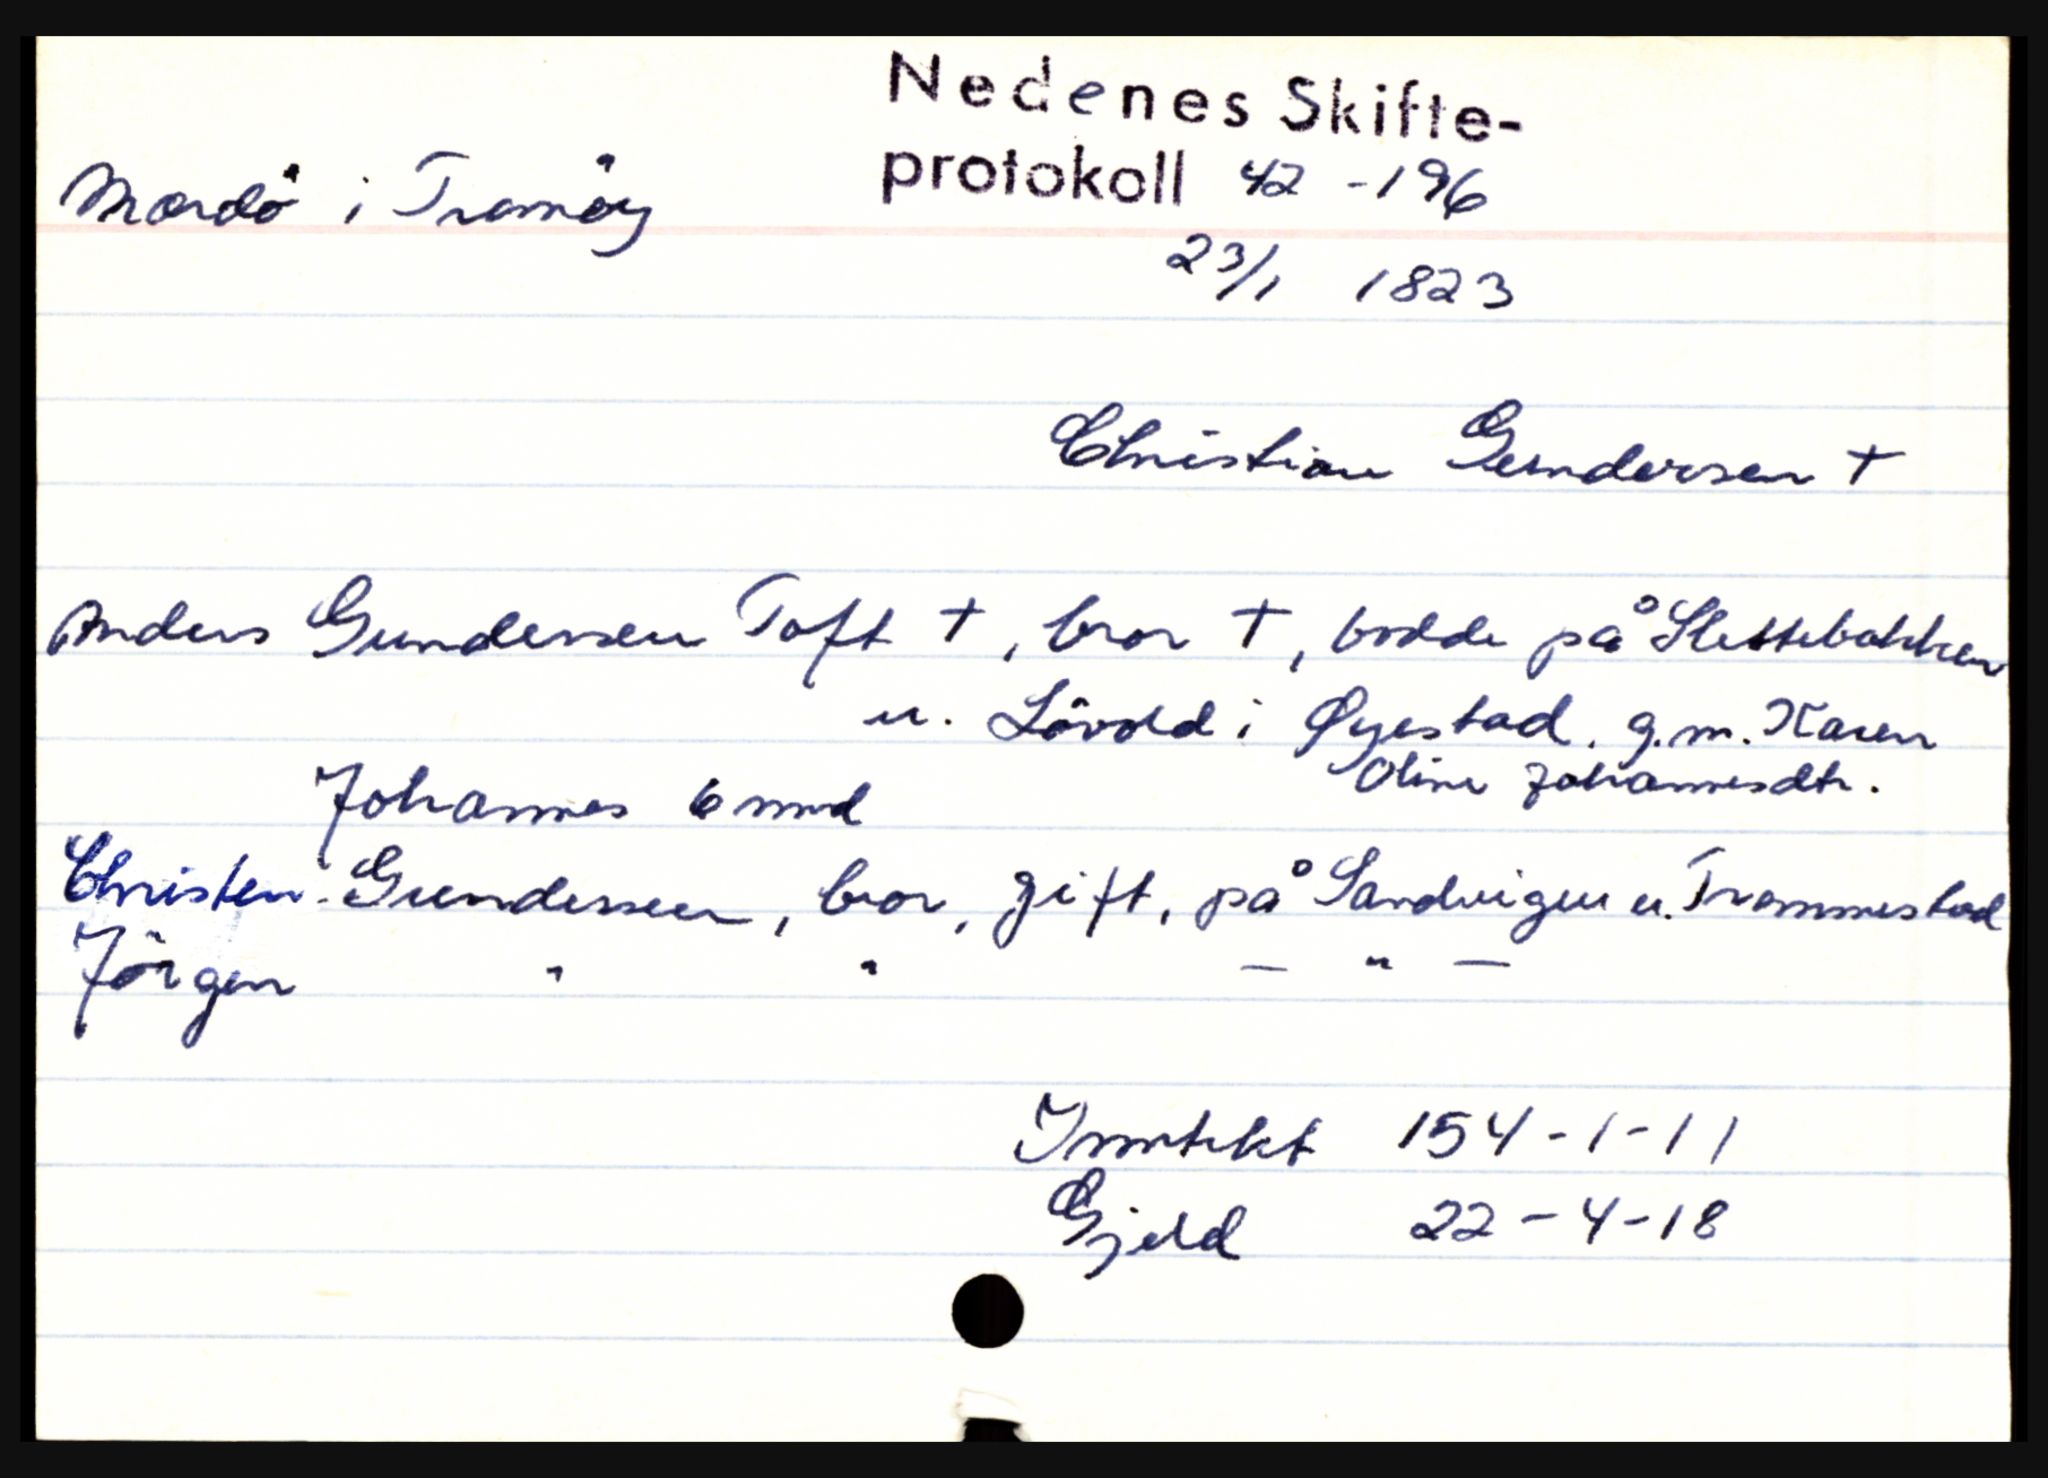 Nedenes Skifte-
protokoll 42 - 196
Mærdö i Tromöy
23/1 1823
Christian Gundersen †
Anders Gundersen Toft †, bror †, bodde på Slettebakken
u. Lövold i Øyestad. g.m. Karen
Oline Johannesdtr.
Johannes 6 mnd
Christen Gundersen, bror, gift, på Sandvigen u. Trommestad
Jörgen " " — " —
Inntekt 154 - 1 - 11
Gjeld 22 - 4 - 18